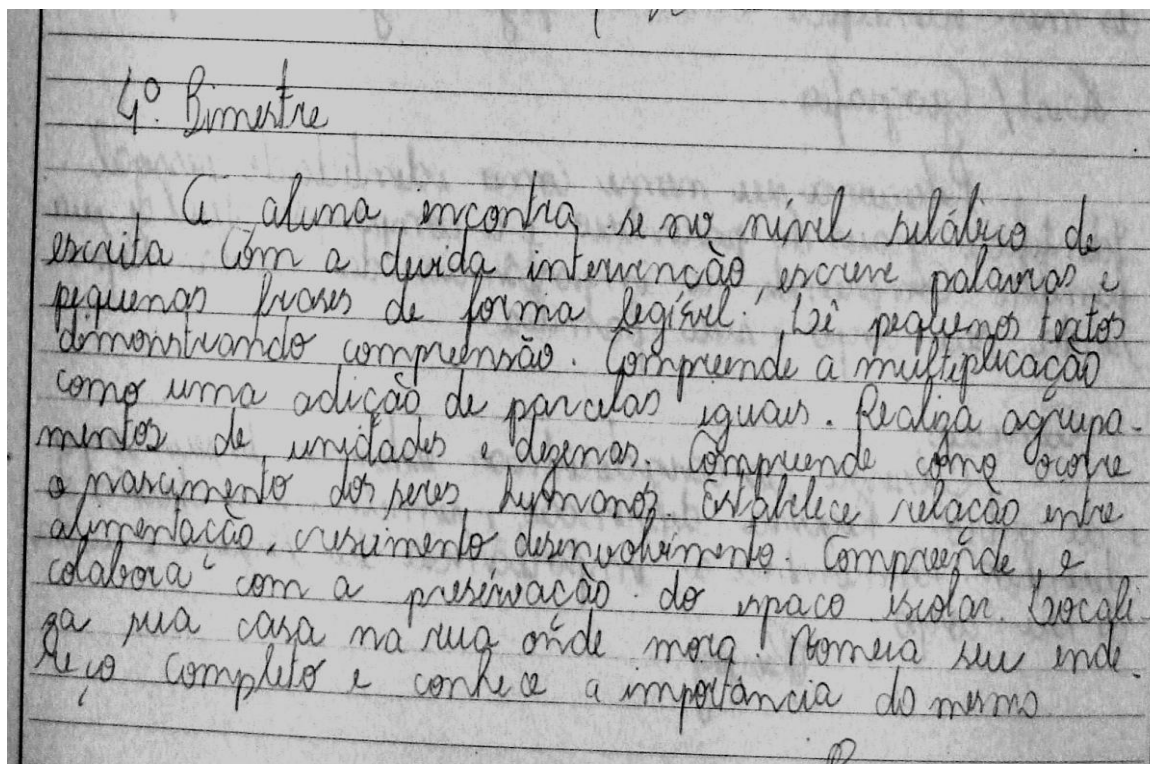 4º. Bimestre
A aluna encontra se no nível silábico de
escrita com a devida intervenção, escreve palavras e
pequenas frases de forma legível. Lê pequenos textos
demonstrando compreensão. Compreende a multiplicação
como uma adição de parcelas iguais. Realiza agrupa-
mentos de unidades e dezenas. Compreende como ocorre
o nascimento dos seres humanos. Estabelece relação entre
alimentação, crescimento desenvolvimento. Compreende e
colabora com a preservação do espaço escolar. Locali-
za sua casa na rua onde mora. Nomeia seu ende-
reço completo e conhece a importância do mesmo